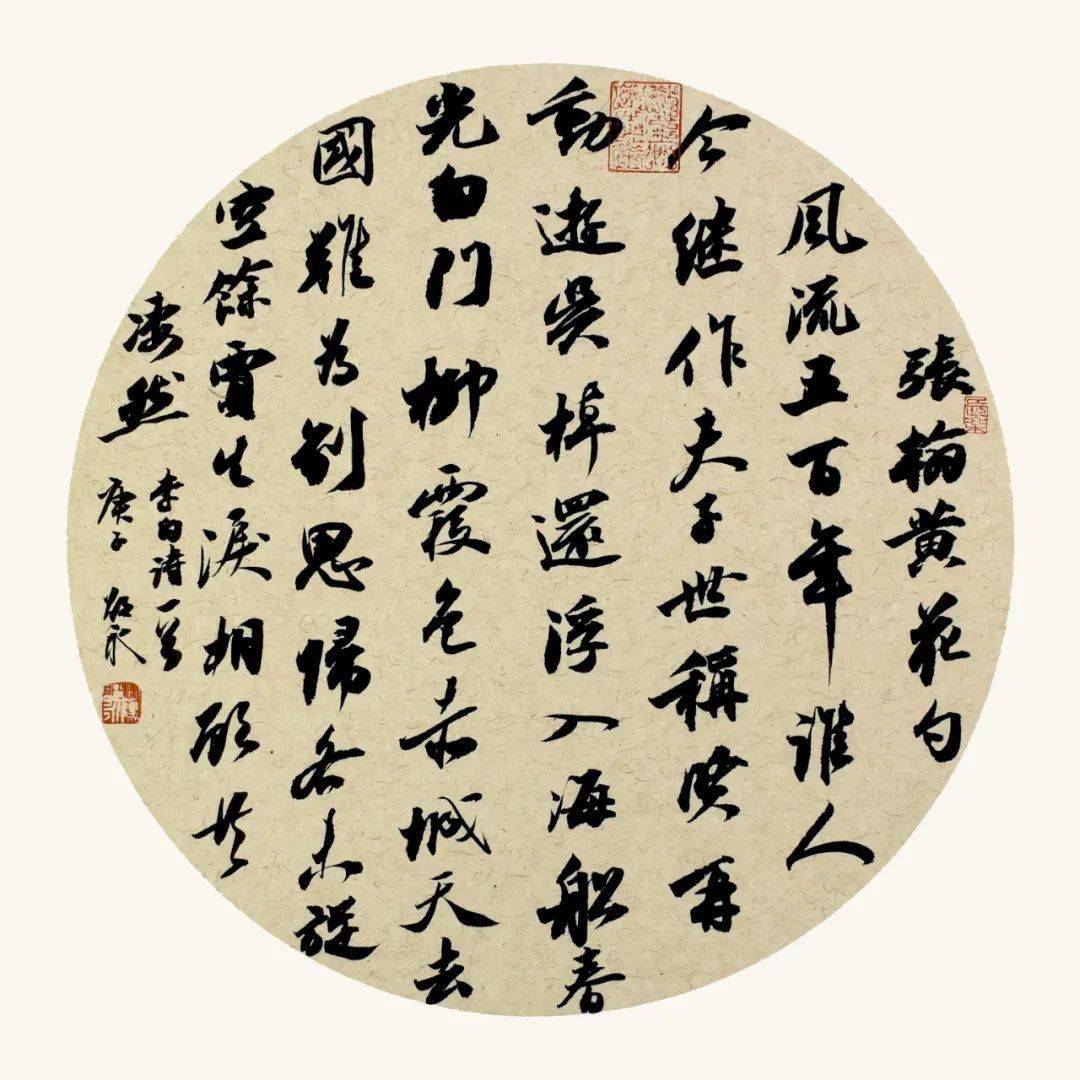 張翰黄花句
風流五百年誰人
今继作夫子世稱賢再
動遊吳棹還浮入海船春
光白門柳霞色赤城天去
國難為別思歸各未旋
空餘賈生淚相顧共
凄然
李白詩一首
庚子